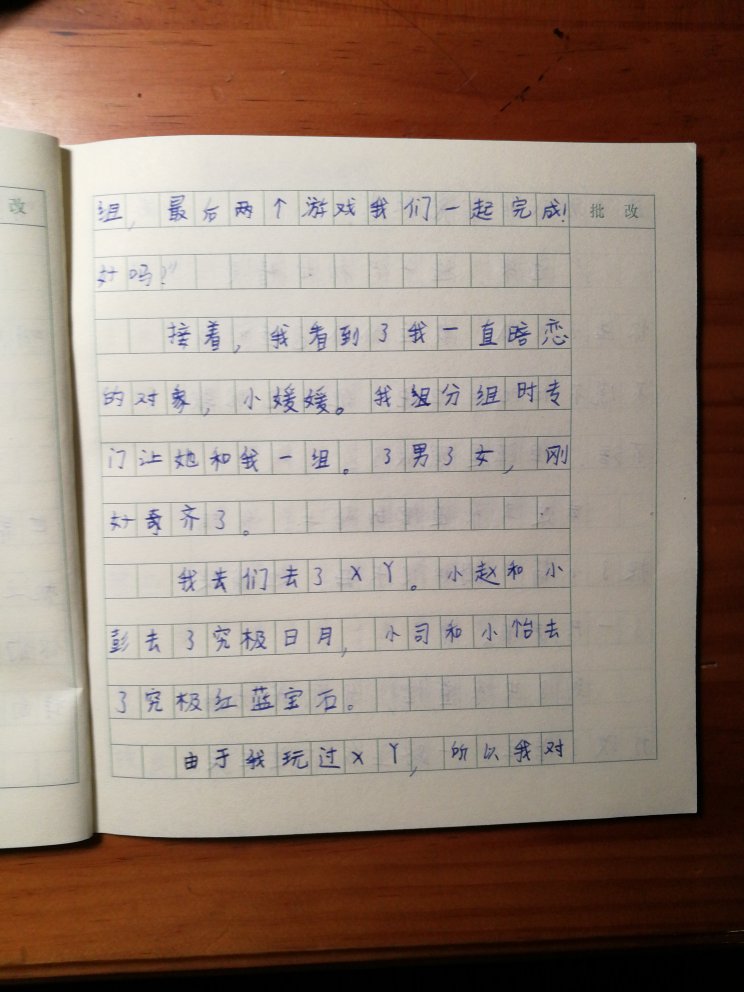 改
批 改
组，最后两个游戏我们一起完成！
好吗？”
接着，我看到了我一直暗恋
的对象，小媛媛。我组分组时专
门让她和我一组。3男3女，刚
好奇齐了。
我去们去了XY。小赵和小
彭去了究极日月，小司和小怡去
了究极红蓝宝石。
由于我玩过XY，所以我对